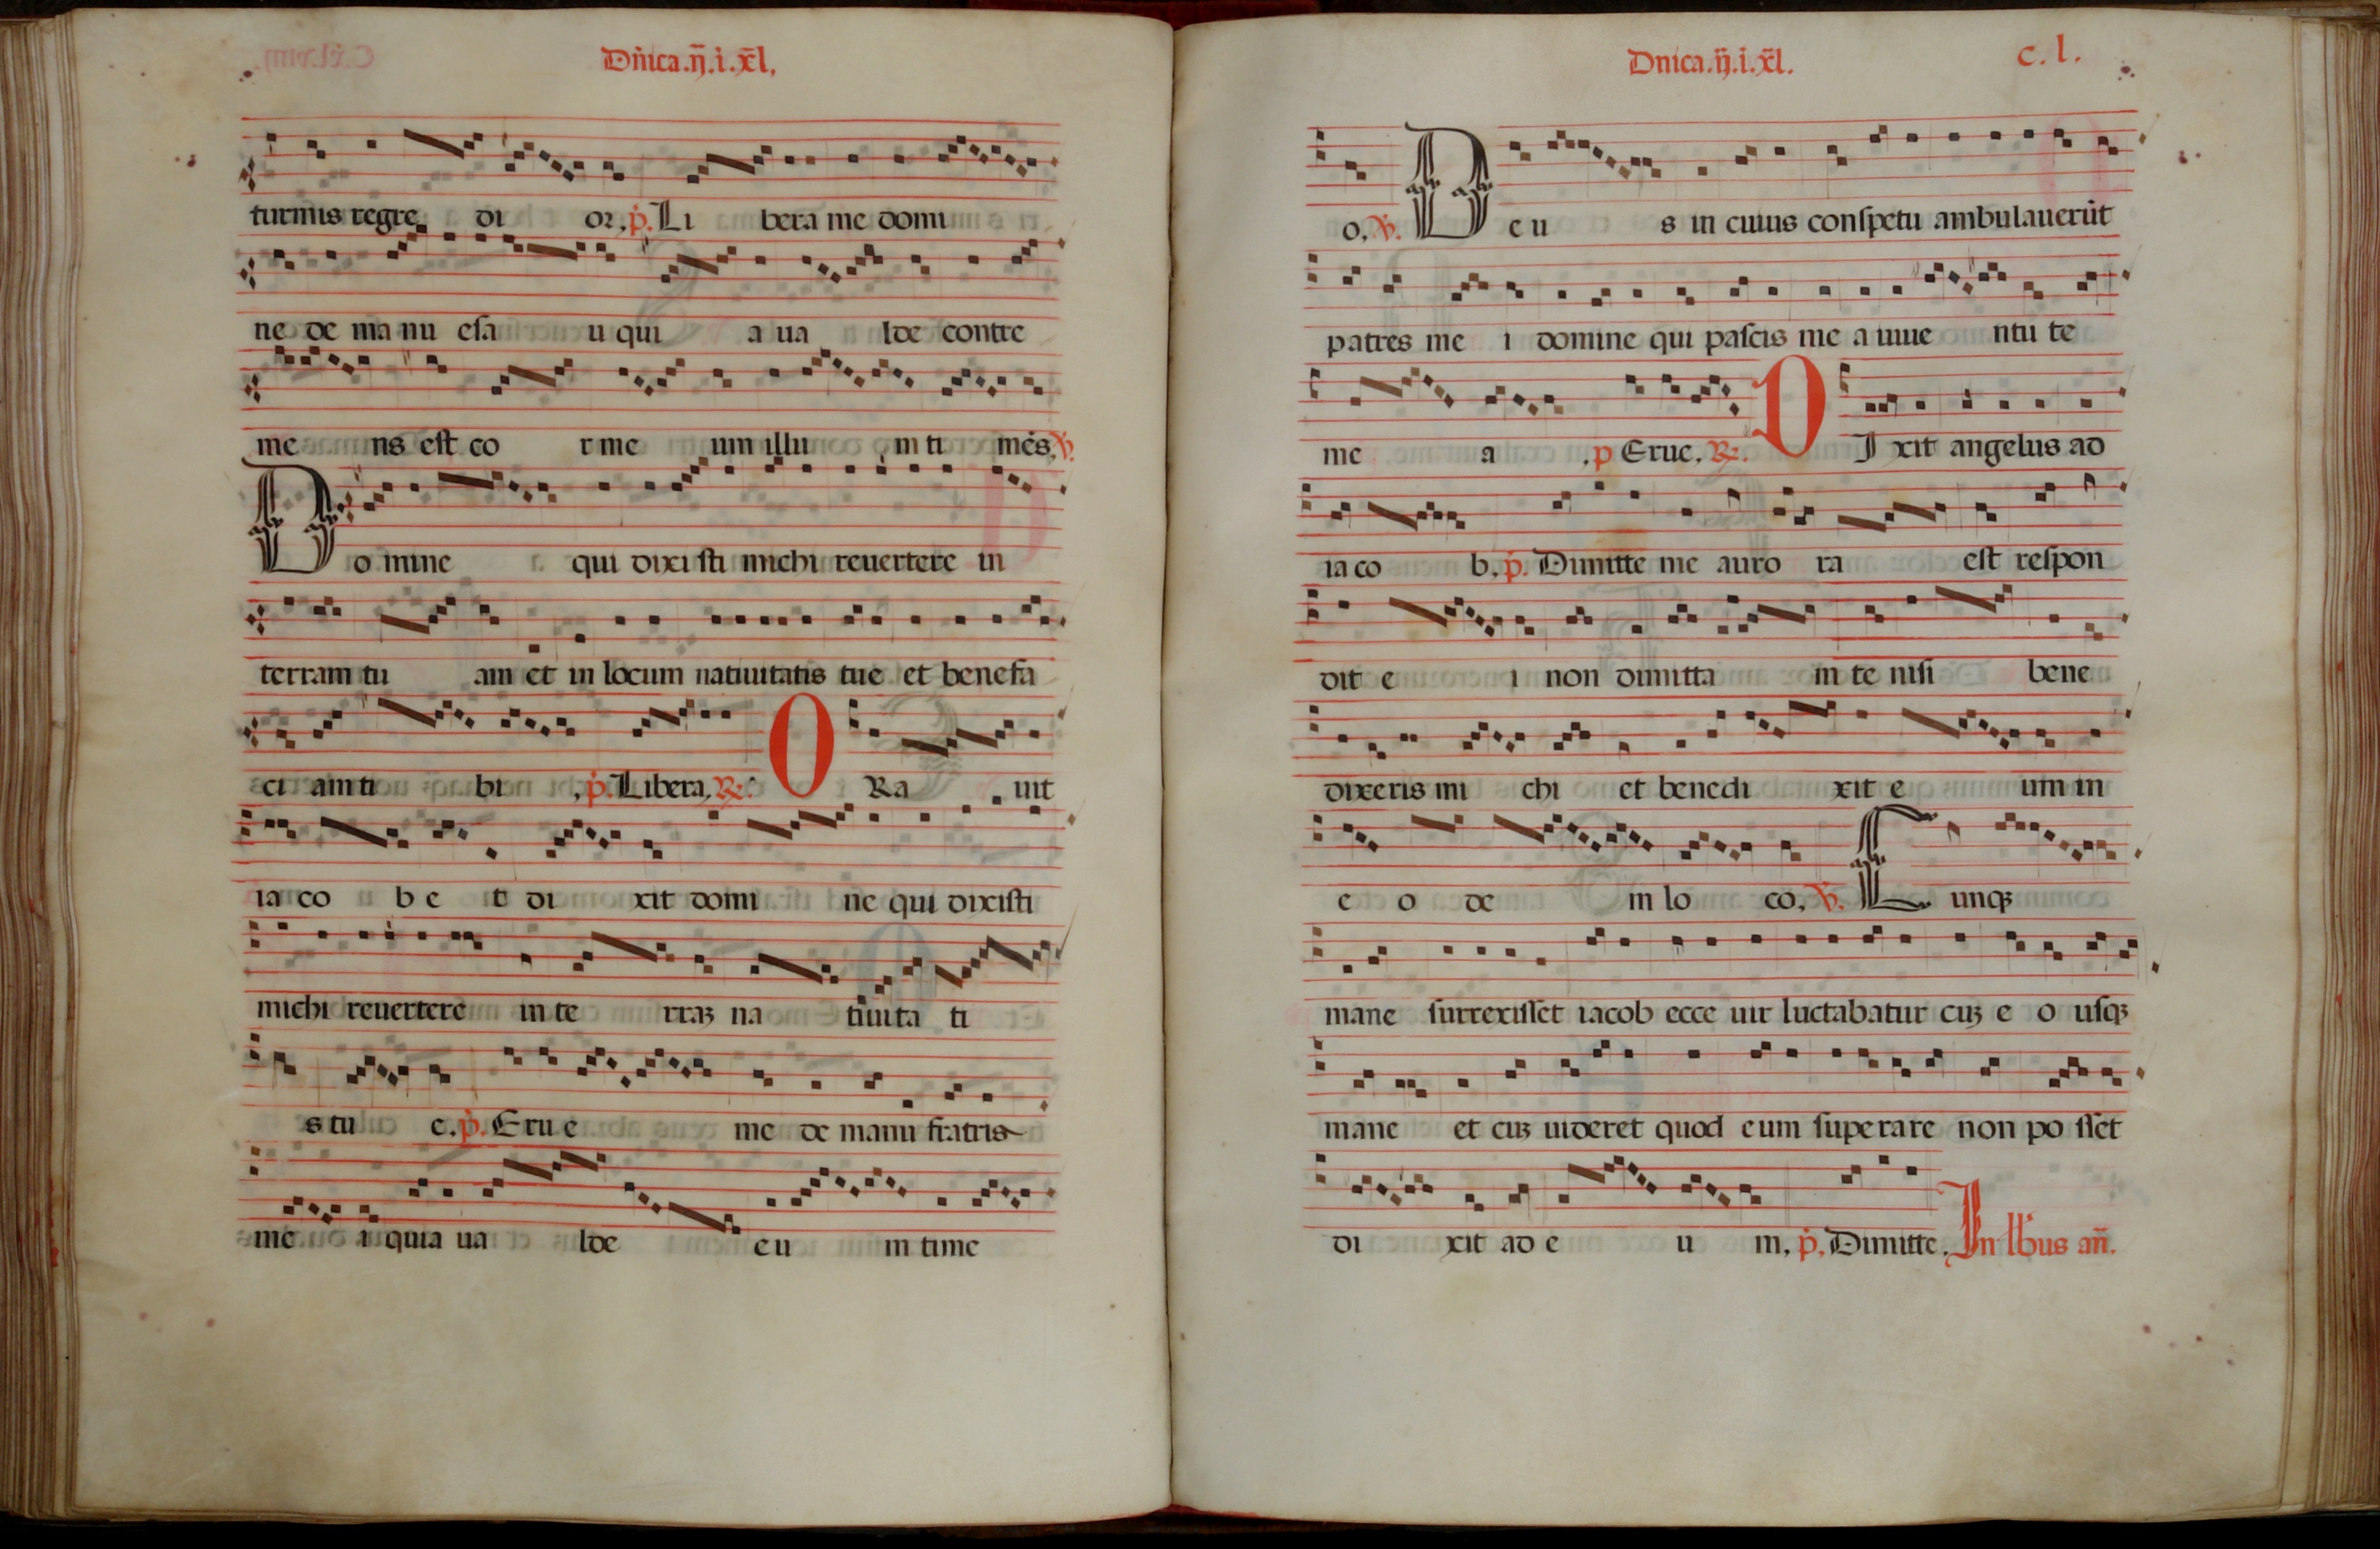 Dñica.ij.i.xl.
turmis regre di or, p. Li bera me domi
ne de ma nu esa u qui a ua lde contre
me ns est co r me um illu m ti mẽs. V.
Do mine qui dixi sti michi reuertere in
terram tu am et in locum natiuitatis tue et benefa
ci am ti bi , p. Libera, R. O Ra uit
ia co b e t di xit domi ne qui dixisti
michi reuertere in te rraꝫ na tiuita ti
s tu e. p. Eru e me de manu fratris
me i quia ua lde eu m time
Dnica.ij.i.xl. c.l.
o, V. De u s in cuius conspetu ambulauerũt
patres me i domine qui pascis me a iuue ntu te
me a , p Erue, R. D I xit angelus ad
ia co b, p. Dimitte me auro ra est respon
dit e i non dimitta m te nisi bene
dixeris mi chi et benedi xit e um in
e o de m lo co, V. C unqꝫ
mane surrexisset iacob ecce uir luctabatur cuꝫ e o usqꝫ
mane et cuꝫ uideret quod eum superare non po sset
di xit ad e u m, p. Dimitte. In lb̃us añ.